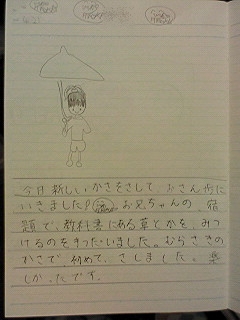 今日新しいかさをさして、おさんぽに
いきました。お兄ちゃんの 宿
題で、教科書にある草とかを、みつ
けるのをてつだいました。むらさきの
かさで、初めて、さしました。楽
しかったです。